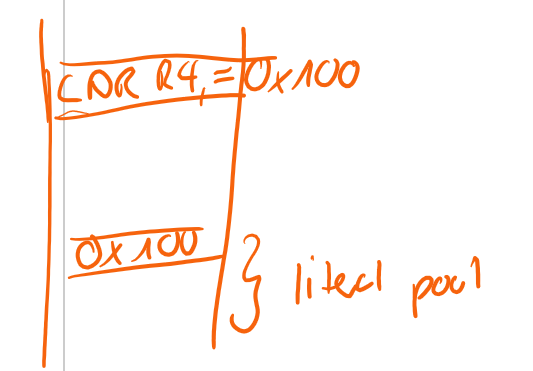 LDR R4, = 0x100
0x100
literal pool